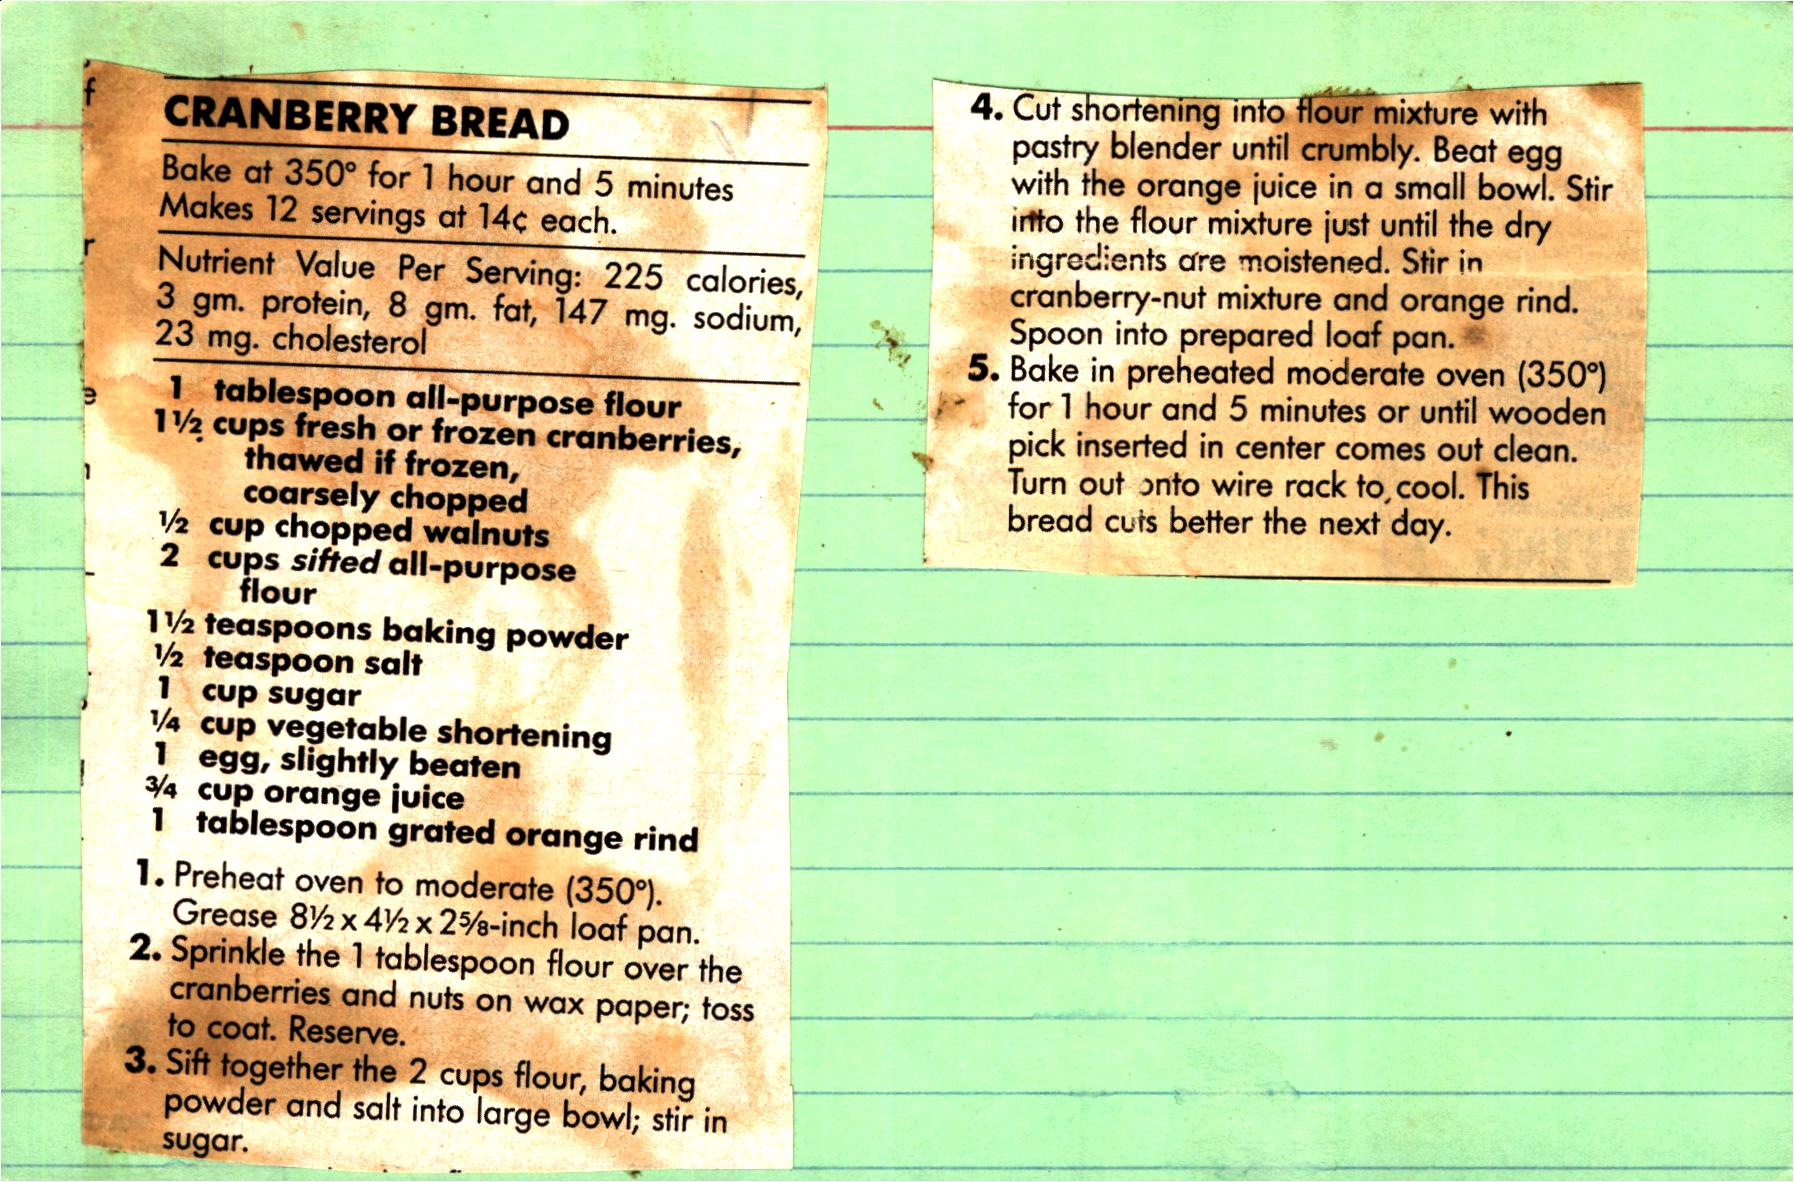 CRANBERRY BREAD
Bake at 350° for 1 hour and 5 minutes
Makes 12 servings at 14¢ each.
Nutrient Value Per Serving: 225 calories,
3 gm. protein, 8 gm. fat, 147 mg. sodium,
23 mg. cholesterol
1 tablespoon all-purpose flour
1½ cups fresh or frozen cranberries,
thawed if frozen,
coarsely chopped
½ cup chopped walnuts
2 cups sifted all-purpose
flour
1½ teaspoons baking powder
½ teaspoon salt
1 cup sugar
¼ cup vegetable shortening
1 egg, slightly beaten
¾ cup orange juice
1 tablespoon grated orange rind
1. Preheat oven to moderate (350°).
Grease 8½ x 4½ x 2⅝-inch loaf pan.
2. Sprinkle the 1 tablespoon flour over the
cranberries and nuts on wax paper; toss
to coat. Reserve.
3. Sift together the 2 cups flour, baking
powder and salt into large bowl; stir in
sugar.
4. Cut shortening into flour mixture with
pastry blender until crumbly. Beat egg
with the orange juice in a small bowl. Stir
into the flour mixture just until the dry
ingredients are moistened. Stir in
cranberry-nut mixture and orange rind.
Spoon into prepared loaf pan.
5. Bake in preheated moderate oven (350°)
for 1 hour and 5 minutes or until wooden
pick inserted in center comes out clean.
Turn out onto wire rack to cool. This
bread cuts better the next day.